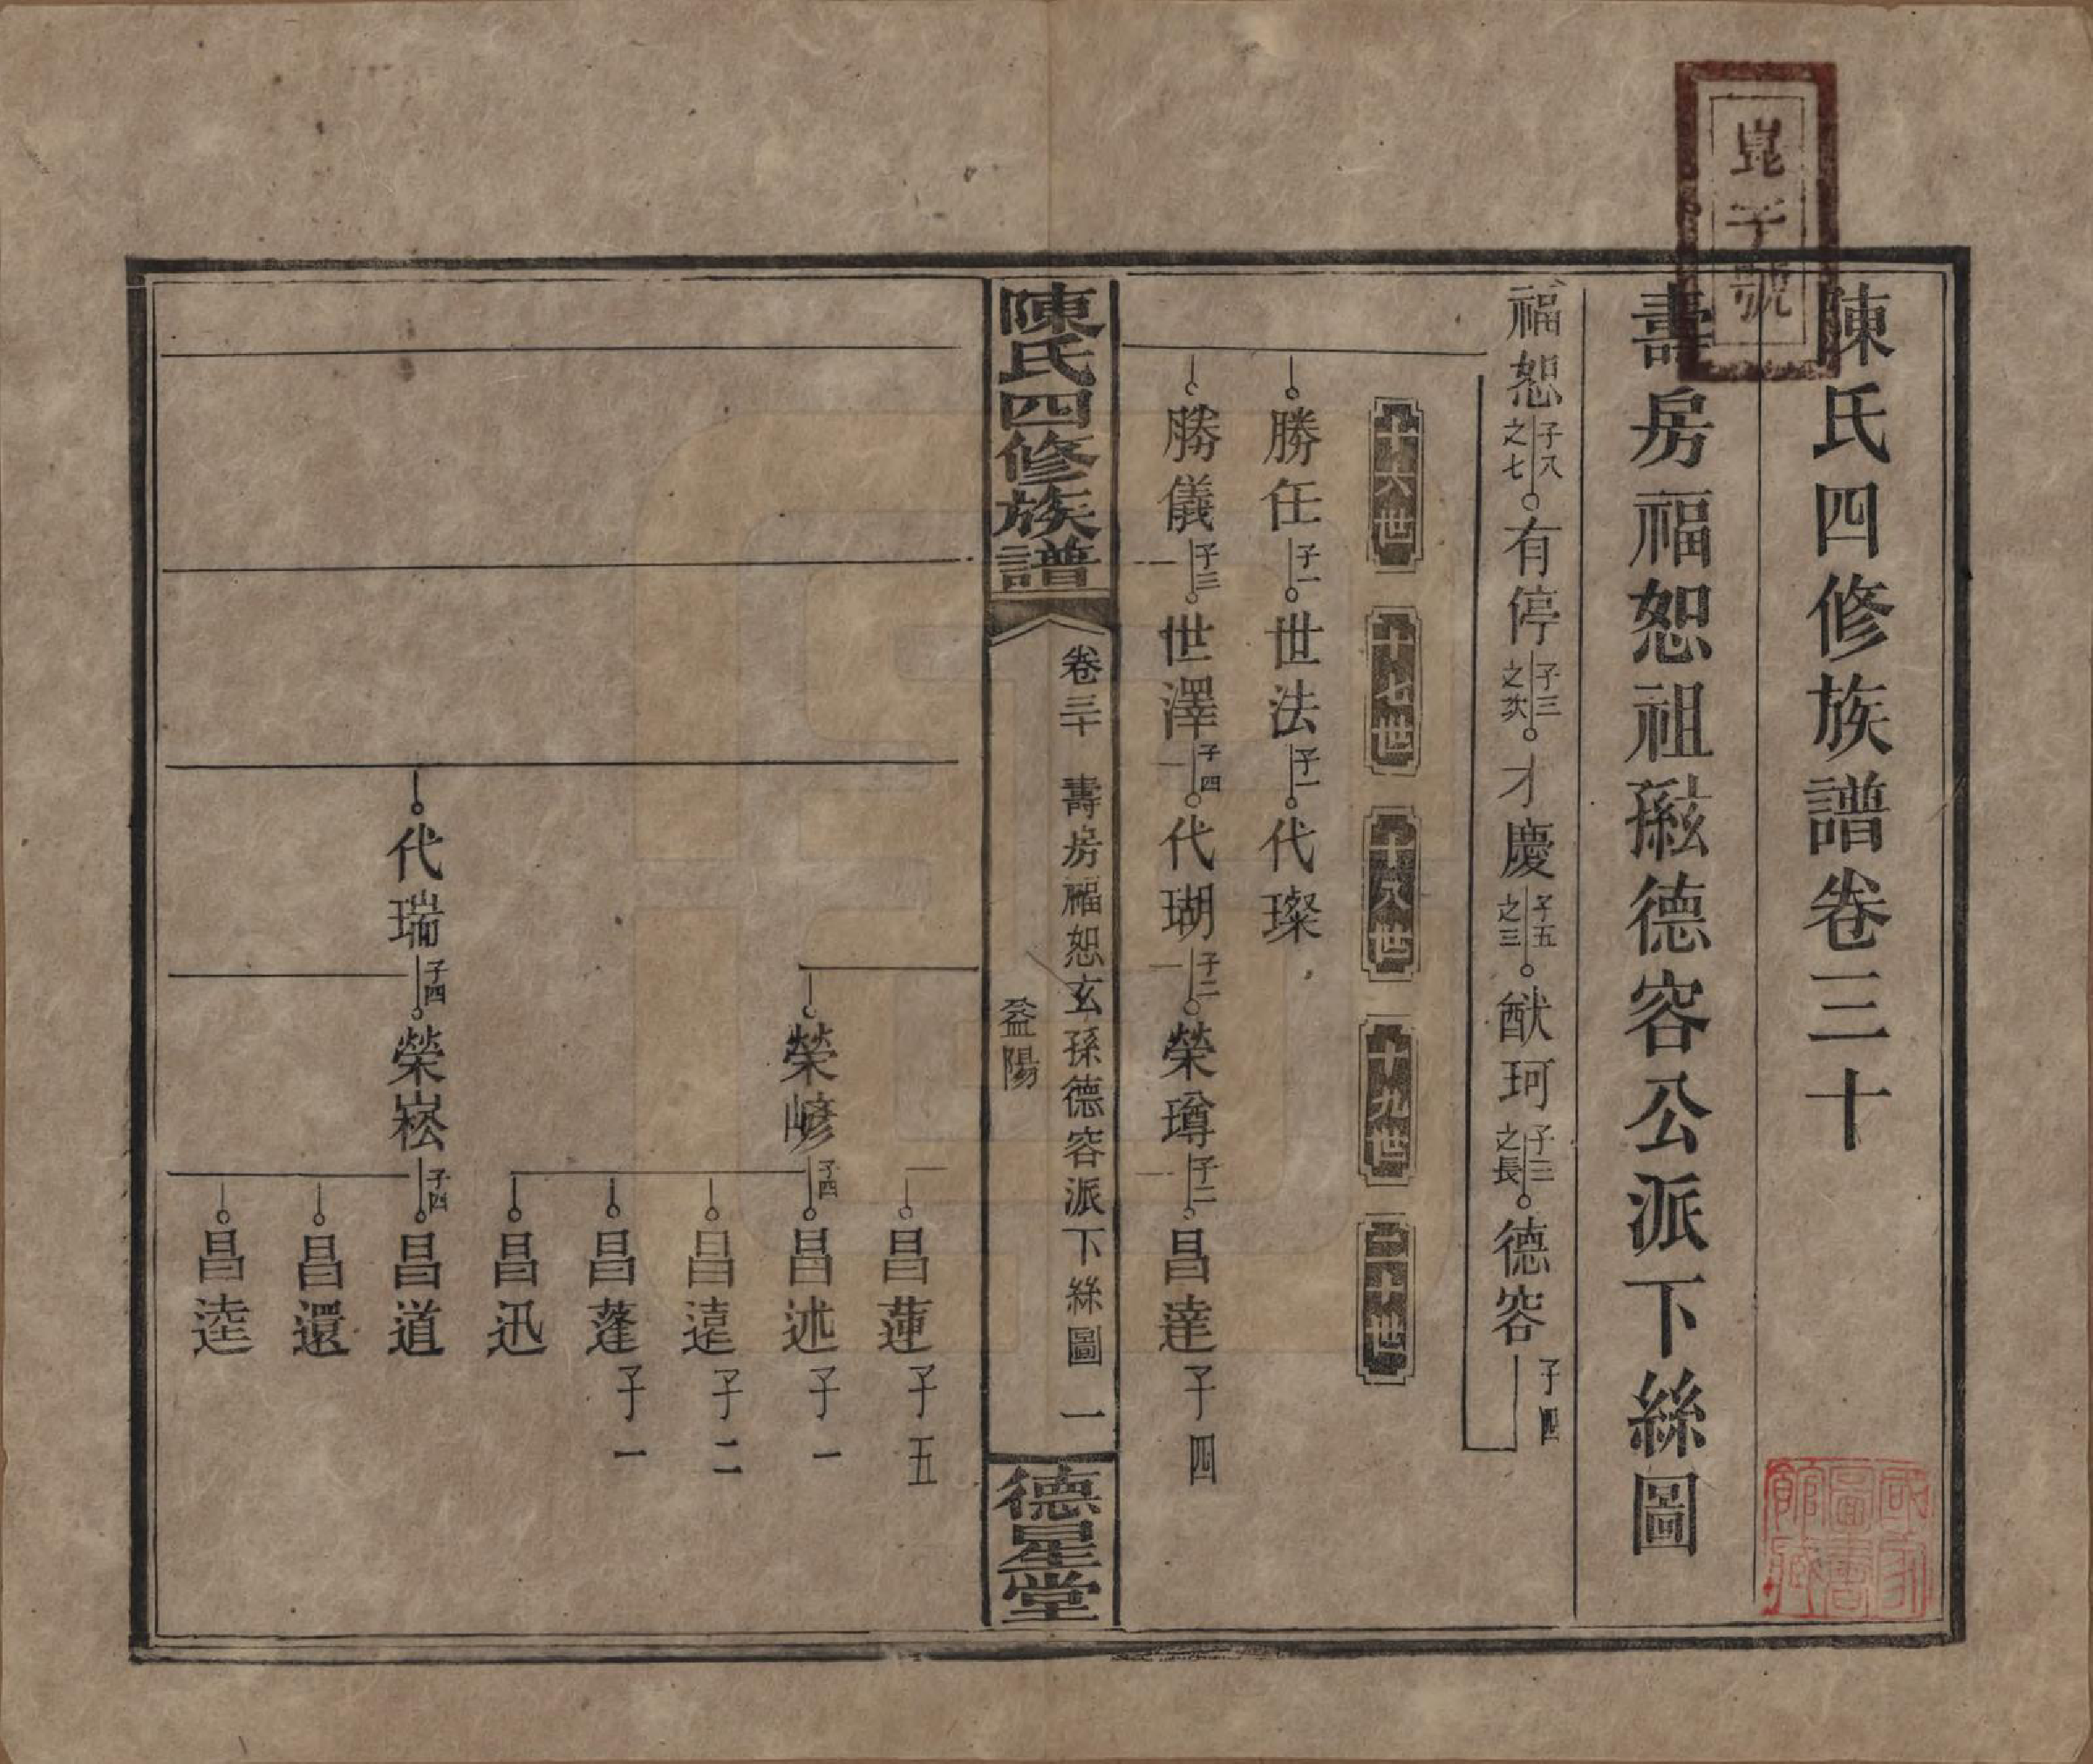 崑字號
陳氏四修族譜卷三十
壽房福恕祖玄孫德容公派下絲圖
福恕 子八之七 有停 子三之次 才慶 子五之三 猷珂 子二之長 德容 子四
十六世 十七世 十八世 十九世 二十世
勝任 子一 世法 子一 代璨
勝儀 子三 世澤 子四 代瑚 子二 榮璕 子二 昌達 子四
陳氏四修族譜
卷三十 壽房福恕玄孫德容派下絲圖 一
益陽
德星堂
昌蓮 子五
榮嵃 子四 昌述 子一
昌遠 子二
昌蓬 子一
昌迅
代瑞 子四 榮崧 子四 昌道
昌還
昌逵
國家圖書館藏